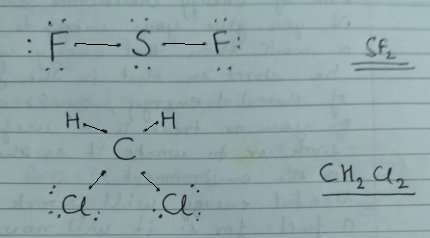 :F̤̈—S̤̈—F̤̈: SF₂
H H
C
:C̤̈l: :C̤̈l: CH₂Cl₂